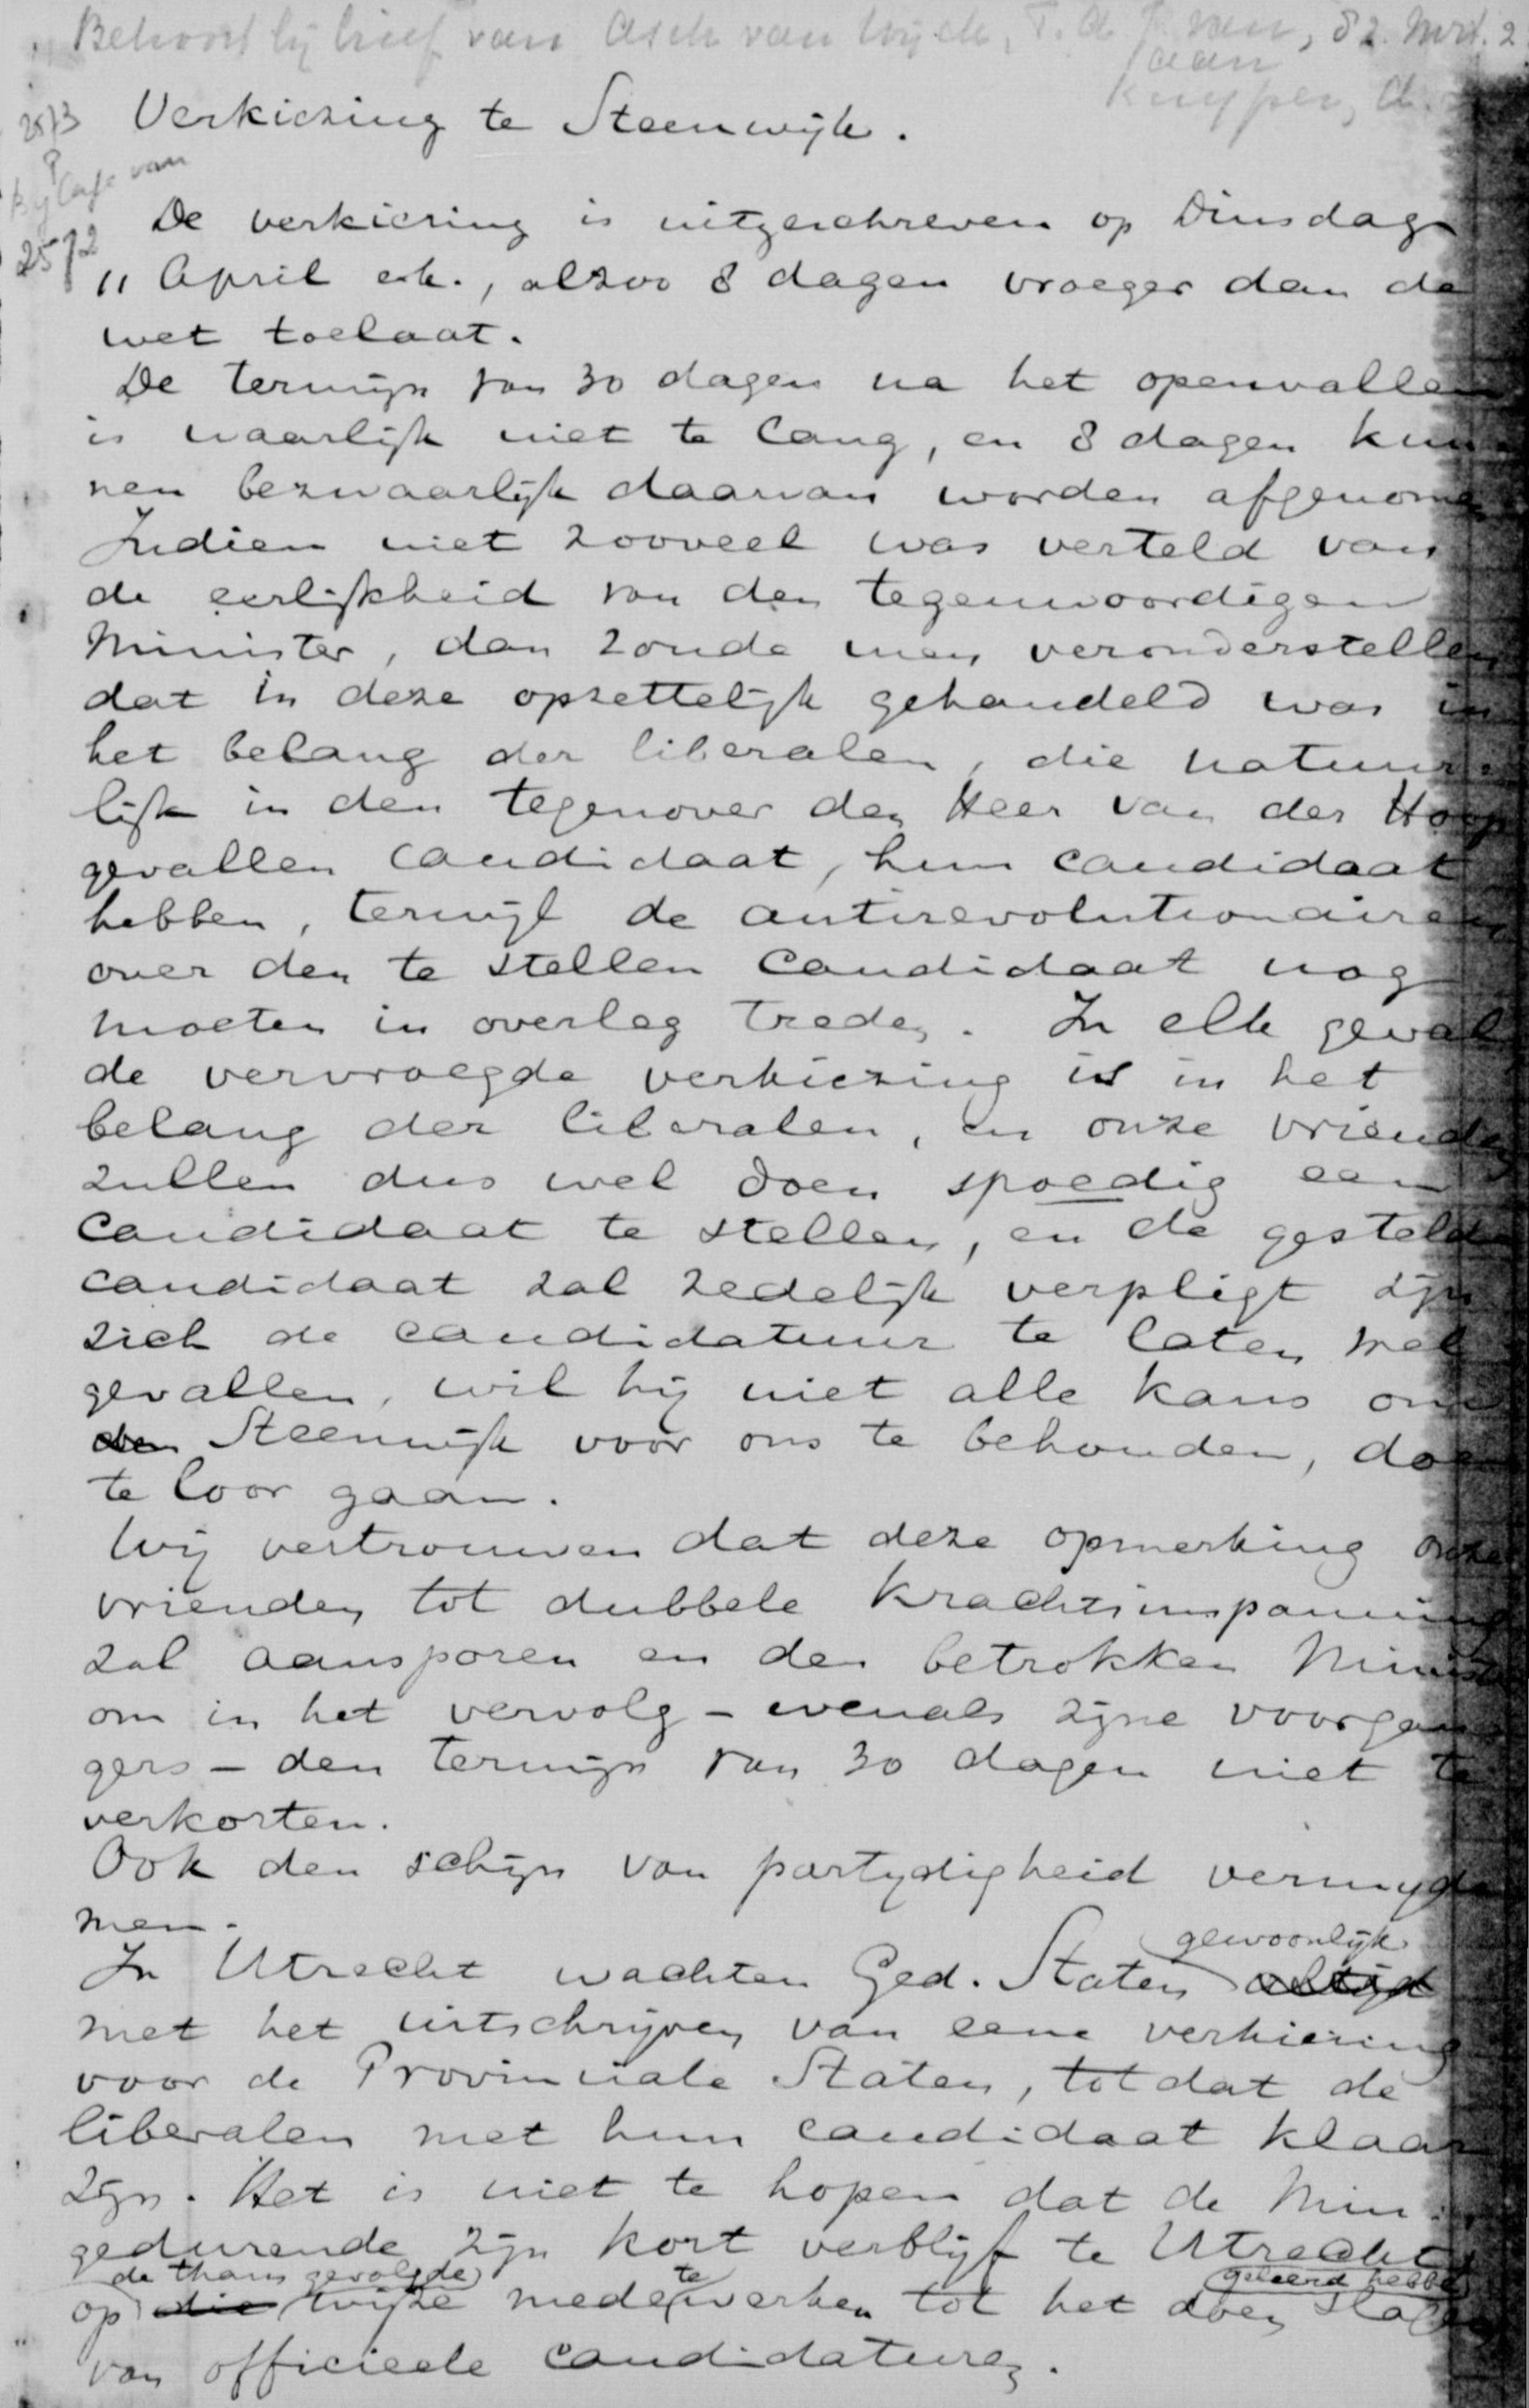 Behoort bij brief van Asch van Wijck, van, 82 Mrt. 2
aan
Kuyper, A.
2573
Bijlage van
2572
Verkiezing te Steenwijk.
De verkiezing is uitgeschreven op Dinsdag
11 April e.k., alzoo 8 dagen vroeger dan de
wet toelaat.
De termijn van 30 dagen na het openvallen
is waarlijk niet te lang, en 8 dagen kun-
nen bezwaarlijk daarvan worden afgenomen
Indien niet zooveel was verteld van
de eerlijkheid van den tegenwoordigen
Minister, dan zoude men veronderstellen
dat in deze opzettelijk gehandeld was in
het belang der liberalen, die natuur-
lijk in den tegenover den Heer van der Hoop
gevallen candidaat, hun candidaat
hebben, terwijl de antirevolutionairen
over den te stellen candidaat nog
moeten in overleg treden. In elk geval
de vervroegde verkiezing is in het
belang der liberalen, en onze vrienden
zullen dus wel doen spoedig een
candidaat te stellen, en de gestelde
candidaat zal zedelijk verpligt zijn
zich de candidatuur te laten wel
gevallen, wil hij niet alle kans om
den Steenwijk voor ons te behouden, doen
te loor gaan.
Wij vertrouwen dat deze opmerking onze
vrienden tot dubbele krachtsinspanning
zal aansporen en den betrokken Minister
om in het vervolg - evenals zijne voorgan-
gers - den termijn van 30 dagen niet te
verkorten.
Ook den schijn van partydigheid vermyde
men.
gewoonlijk
In Utrecht wachten Ged. Staten altijd
met het uitschrijven van eene verkiezing
voor de Provinciale Staten, totdat de
liberalen met hun candidaat klaar
zijn. Het is niet te hopen dat de Min.
gedurende zijn kort verblijf te Utrecht
de thans gevolgde te geleerd hebbe
op die wijze medewerken tot het doen slagen
van officieele candidaturen.